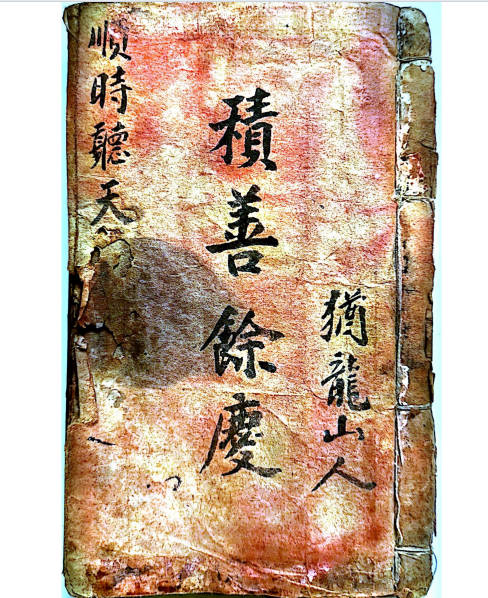 猶龍山人
積善餘慶
順時聽天